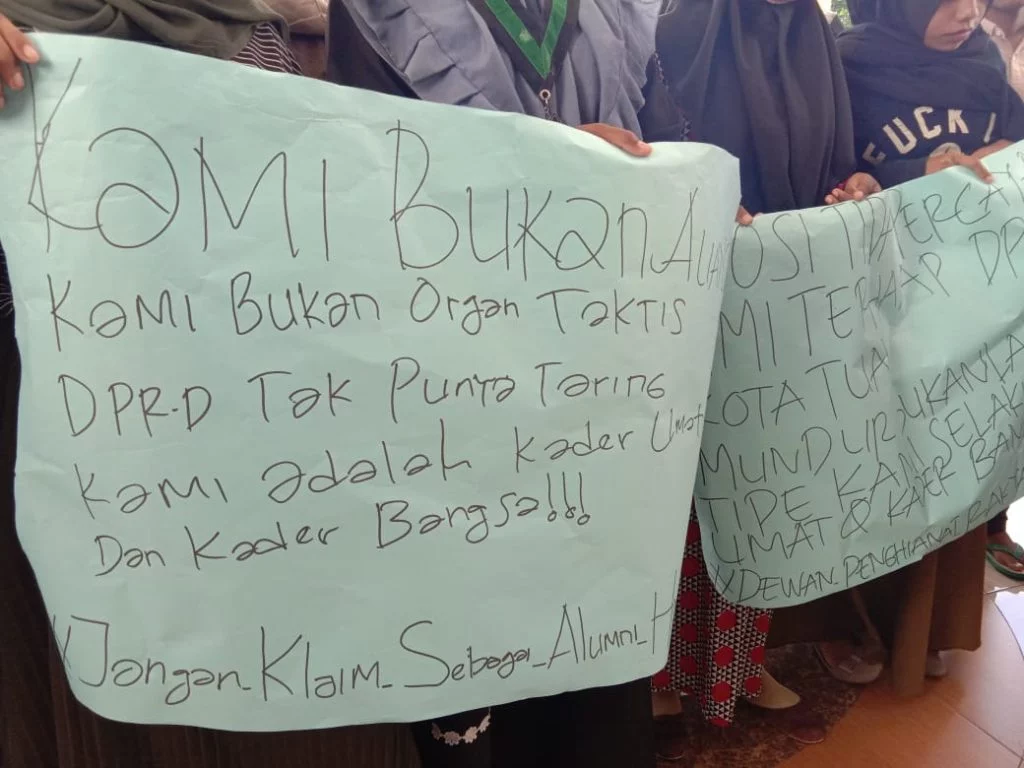 KAMI BUKAN
KAMI BUKAN Organ TAKTIS
DPR.D TAK PUNYA TARING
KAMI adalah Kader Umat
Dan Kader Bangsa!!!
Jangan_Klaim_Sebagai_Alumni_H
OSI TIDAK PERCA
MI TERHADAP DP
KOTA TUA
MUNDUR BUKANLA
TIPE KAMI SELAK
UMAT & KADER BAN
#DEWAN_PENGHIANAT_RAK
FUCK